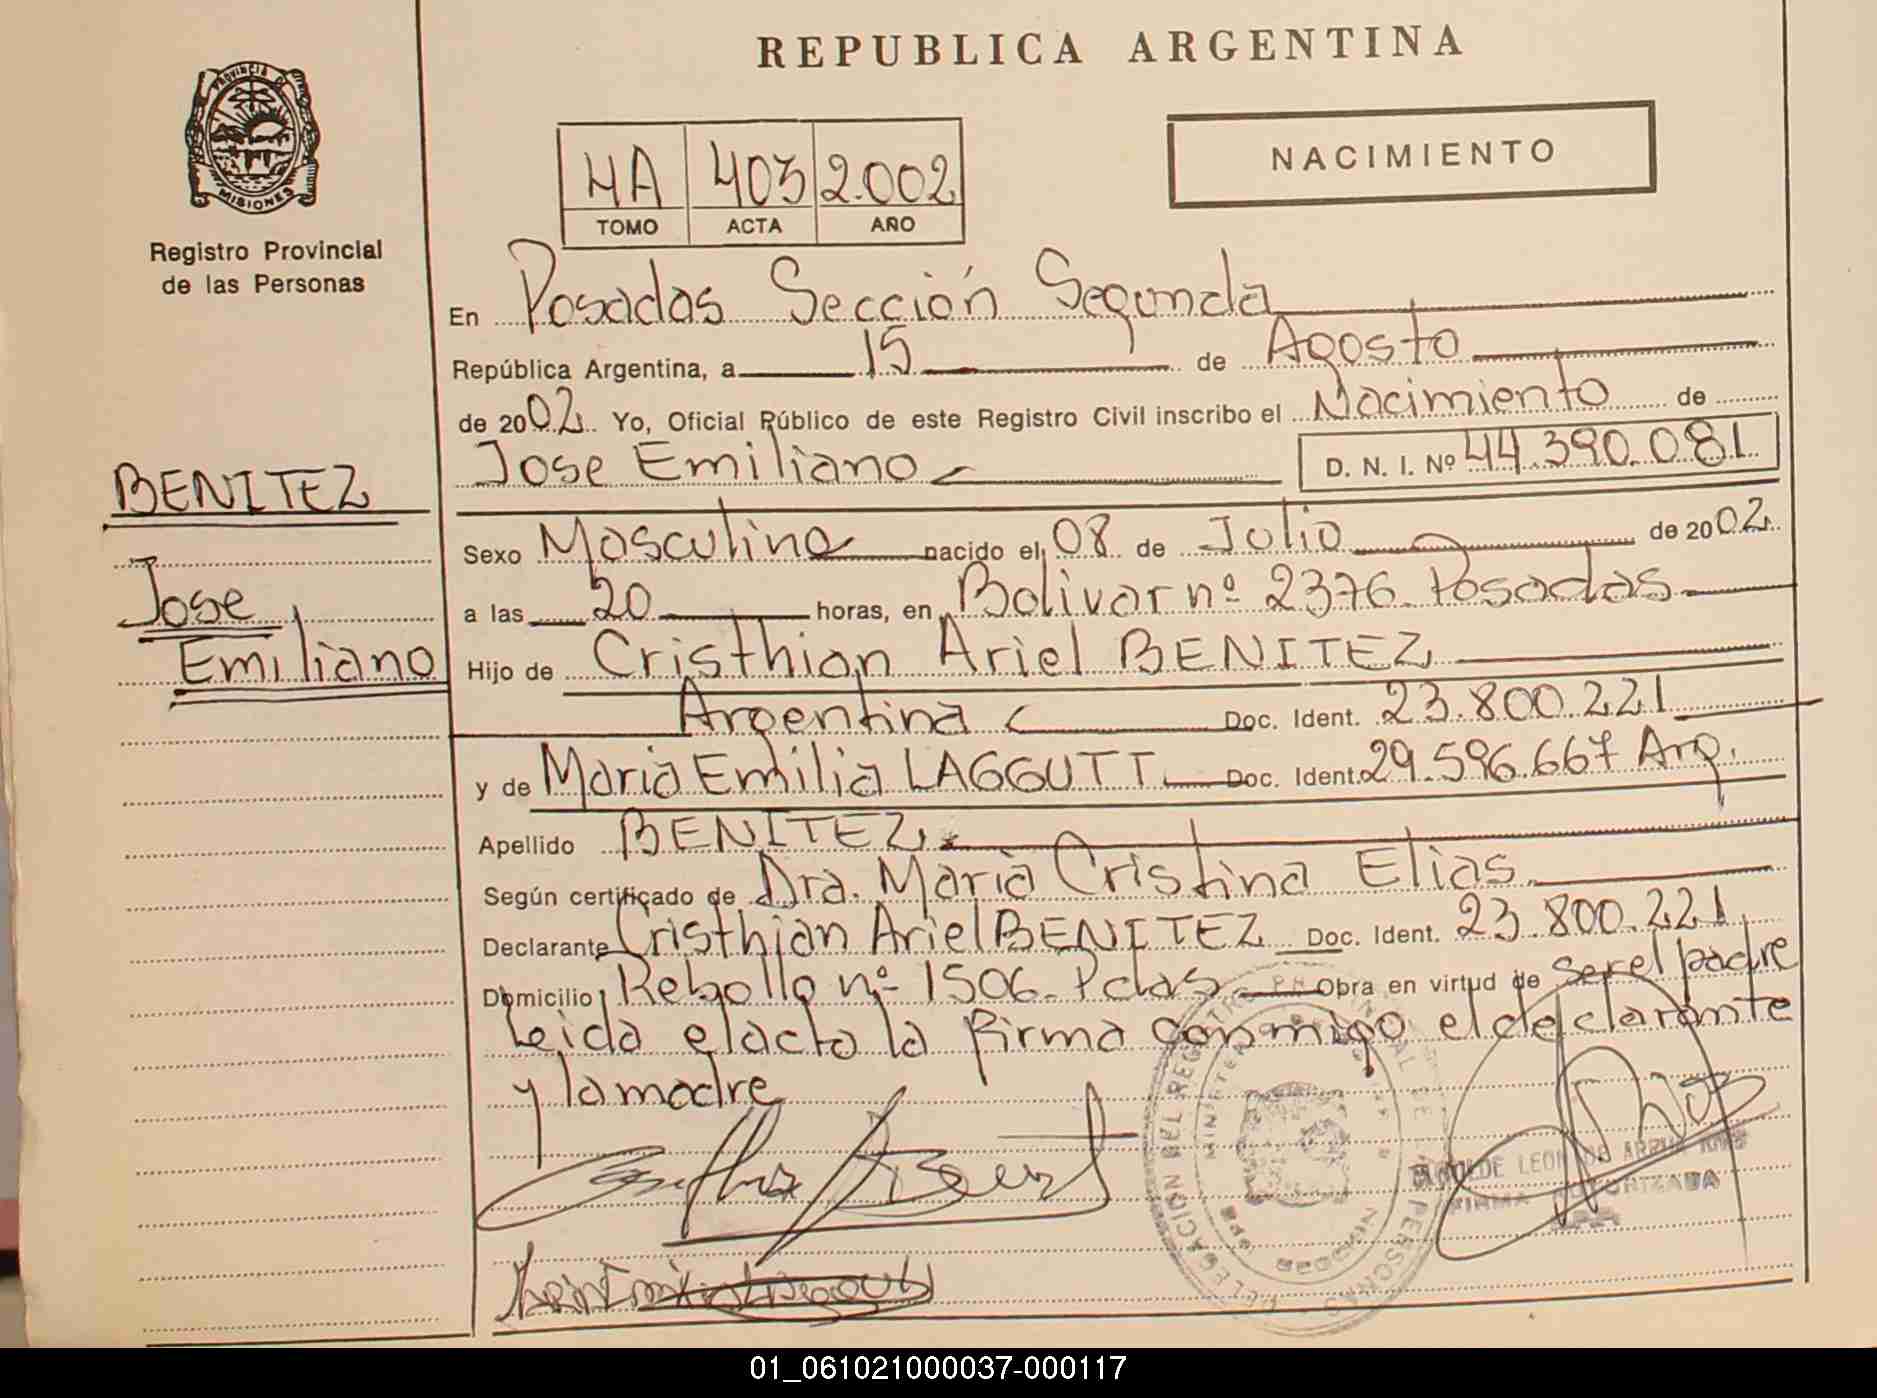 REPUBLICA ARGENTINA
PROVINCIA DE
MISIONES
Registro Provincial
de las Personas
4A 403 2.002
TOMO ACTA AÑO
NACIMIENTO
En Posadas Sección Segunda
República Argentina, a 15 de Agosto
de 2002 Yo, Oficial Público de este Registro Civil inscribo el Nacimiento de
Jose Emiliano D. N. I. Nº 44.390.081
BENITEZ
Jose
Emiliano
Sexo Masculino nacido el 08 de Julio de 2002
a las 20 horas, en Bolivar nº 2376 Posadas
Hijo de Cristhian Ariel BENITEZ
Argentina Doc. Ident. 23.800.221
y de Maria Emilia LAGGUTT Doc. Ident. 29.596.667 Arg.
Apellido BENITEZ
Según certificado de Dra. Maria Cristina Elias
Declarante Cristhian Ariel BENITEZ Doc. Ident. 23.800.221
Domicilio Rebollo nº 1506 Pdas Obra en virtud de ser el padre
Leida el acto la firma conmigo el declarante
y la madre
DELEGACION DEL REGISTRO
PERSONAS
LEON DE
FIRMA AUTORIZADA
01_061021000037-000117